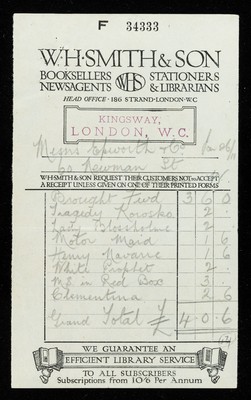 F 34333
W·H·SMITH & SON
BOOKSELLERS STATIONERS
NEWSAGENTS WHS & LIBRARIANS
HEAD OFFICE · 186 STRAND · LONDON · W·C
KINGSWAY,
LONDON, W.C.
Messrs Epworth & Co
Newman St
W·H·SMITH & SON REQUEST THEIR CUSTOMERS NOT TO ACCEPT
A RECEIPT UNLESS GIVEN ON ONE OF THEIR PRINTED FORMS
Brought Fwd 3 6 0
Tragedy Korosko 2 -
Lady Blossholme 2 -
Motor Maid 1 6
Henry Navarre 1 6
White Prophet 2 -
M.S. in Red Box 3 -
Clementina 2 6
Grand Total £ 4 0 6
WE GUARANTEE AN
EFFICIENT LIBRARY SERVICE
TO ALL SUBSCRIBERS
Subscriptions from 10/6 Per Annum